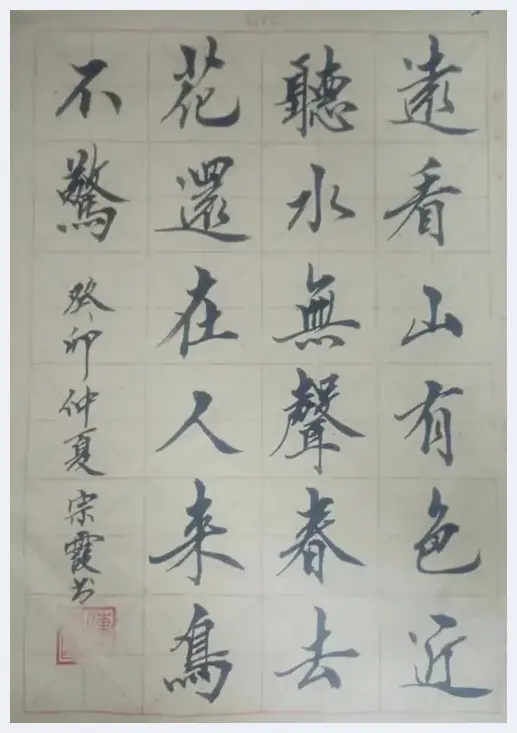 遠看山有色近
聽水無聲春去
花還在人来鳥
不驚
癸卯仲夏宗霞书